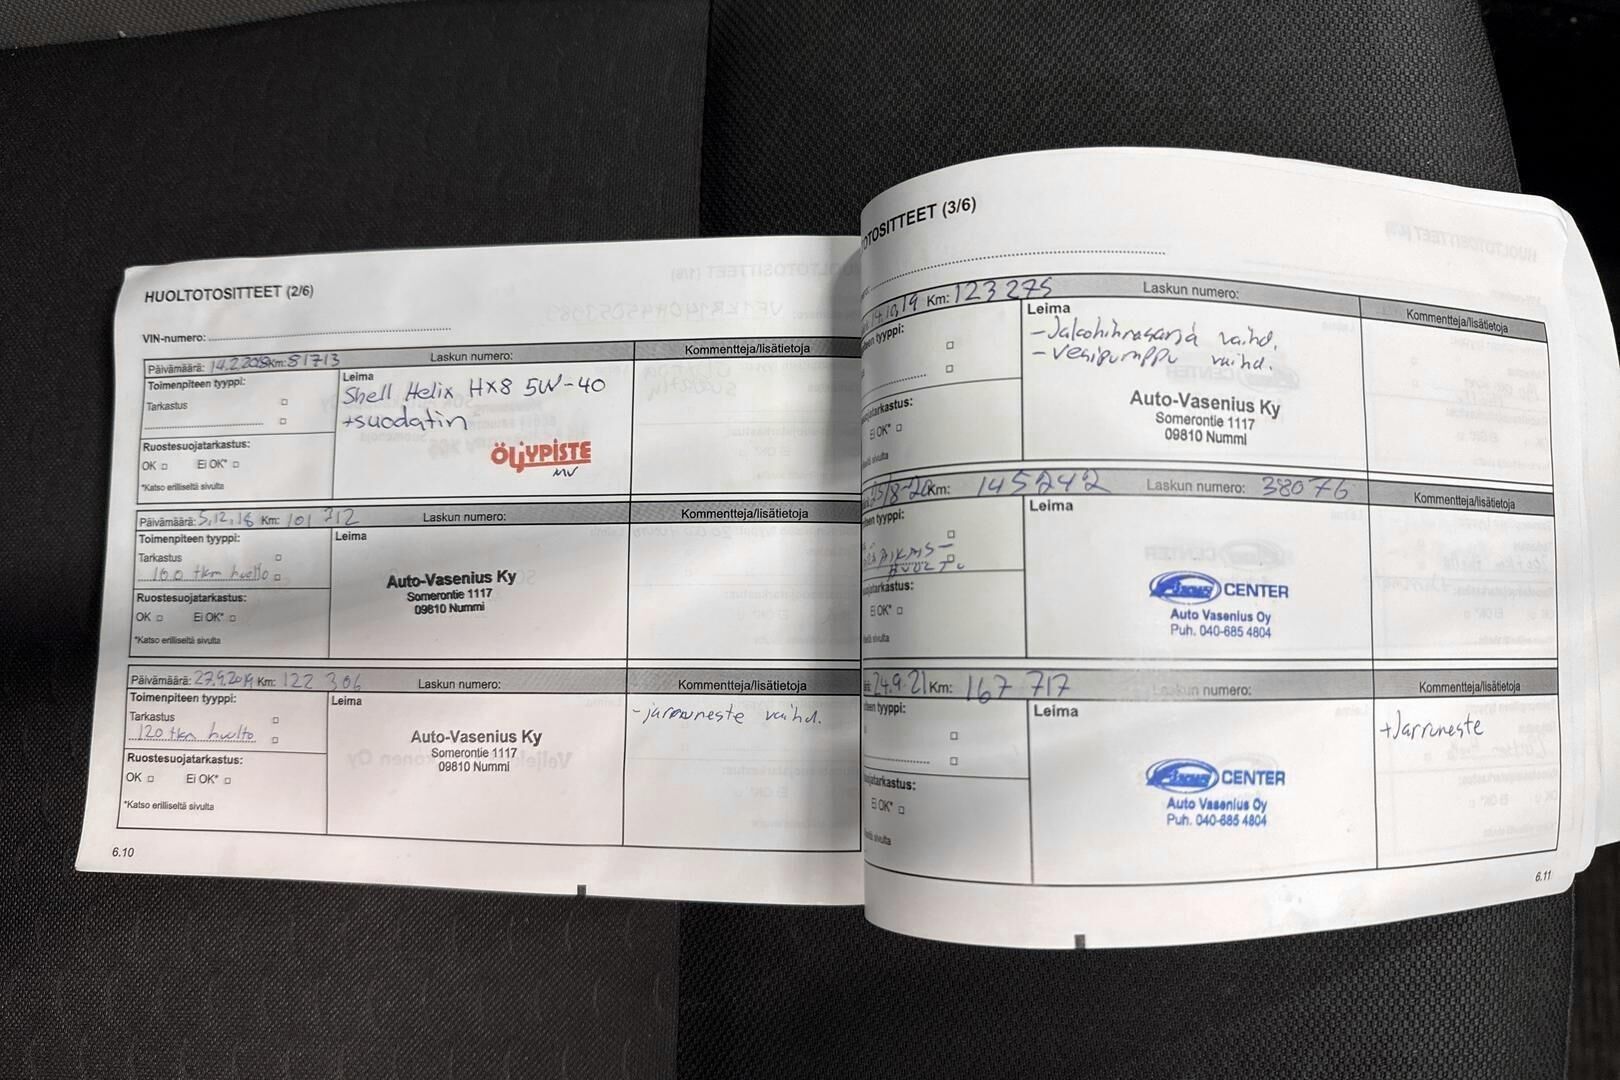 HUOLTOTOSITTEET (2/6)
VIN-numero:
Päivämäärä: 14.2.2018 Km: 81713 Laskun numero: Kommentteja/lisätietoja
Toimenpiteen tyyppi:
Tarkastus
Ruostesuojatarkastus:
OK Ei OK*
*Katso erilliseltä sivulta
Leima
Shell Helix HX8 5W-40
+suodatin
ÖLJYPISTE
MV
Päivämäärä: 5.12.18 Km: 101 712 Laskun numero: Kommentteja/lisätietoja
Toimenpiteen tyyppi:
Tarkastus
100 tkm huolto
Ruostesuojatarkastus:
OK Ei OK*
*Katso erilliseltä sivulta
Leima
Auto-Vasenius Ky
Somerontie 1117
09810 Nummi
Päivämäärä: 27.9.2019 Km: 122 306 Laskun numero: Kommentteja/lisätietoja
Toimenpiteen tyyppi:
Tarkastus
120 tkm huolto
Ruostesuojatarkastus:
OK Ei OK*
*Katso erilliseltä sivulta
Leima
Auto-Vasenius Ky
Somerontie 1117
09810 Nummi
-jarruneste vaihd.
6.10
OTOSITTEET (3/6)
14.10.19 Km: 123 275 Laskun numero: Kommentteja/lisätietoja
tyyppi:
Ei OK*
sivulta
Leima
-Jakohihnasarja vaihd.
-Vesipumppu vaihd.
Auto-Vasenius Ky
Somerontie 1117
09810 Nummi
Km: 145242 Laskun numero: 38076 Kommentteja/lisätietoja
tyyppi:
Ei OK*
sivulta
Leima
CENTER
Auto Vasenius Oy
Puh. 040-685 4804
24.9.21 Km: 167 717 Laskun numero: Kommentteja/lisätietoja
tyyppi:
Ei OK*
sivulta
Leima
CENTER
Auto Vasenius Oy
Puh. 040-685 4804
+Jarruneste
6.11